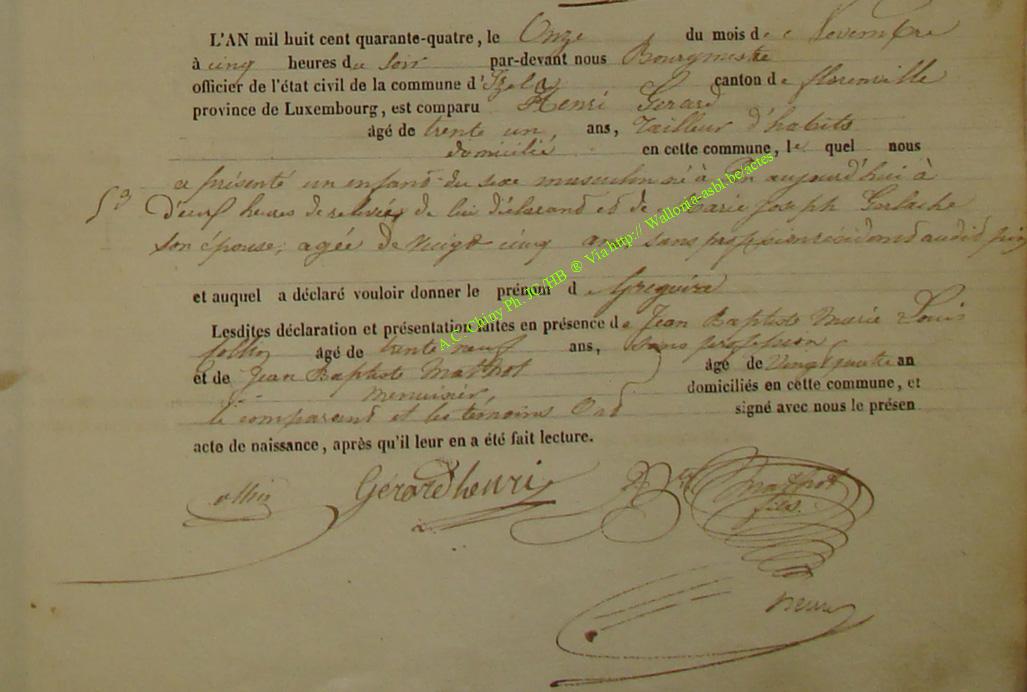 L'AN mil huit cent quarante-quatre, le Onze du mois de Novembre
à cinq heures du soir par-devant nous Bourgmestre
officier de l'état civil de la commune d'Izel canton de florenville
province de Luxembourg, est comparu Henri Gerard
âgé de trente un, ans, Tailleur d'habits
domicilié en cette commune, le quel nous
a présenté un enfant du sexe masculin né à Pin aujourd'hui à
53 D'euf heures de relevée, de lui déclarand et de Marie Joseph Gerlache
son épouse, agée de Vingt cinq ans, sans profession résidend audit pin
et auquel a déclaré vouloir donner le prénom d Gregoire
Lesdites déclaration et présentation faites en présence de Jean Baptiste Marie Louis
âgé de trente neuf ans, sans profession
et de Jean Baptiste Mathot âgé de Vingt quatre an
menuisier domiciliés en cette commune, et
le comparend et les témoins Ont signé avec nous le présen
acte de naissance, après qu'il leur en a été fait lecture.
Gérard henri
Mathot
fils.
A.C. Chiny Ph. JC/HB ® Via http:// Wallonia-asbl.be/actes